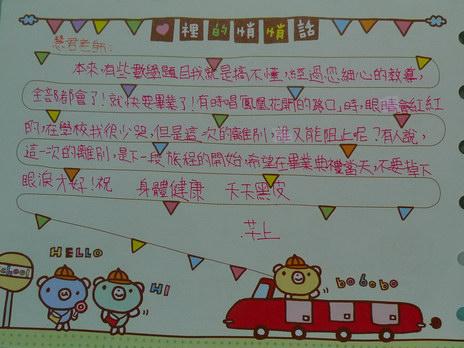 ♥裡的悄悄話
慧君老師:
本來,有些數學題目我就是搞不懂,經過您細心的教導,
全部都會了!就快要畢業了!有時唱『鳳凰花開的路口』時,眼睛會紅紅
的,在學校我很少哭,但是這一次的離別,誰又能阻止呢?有人說,
這一次的離別,是下一段旅程的開始,希望在畢業典禮當天,不要掉下
眼淚才好!祝 身體健康 天天黑皮
上
HELLO
HI
bobobo
School